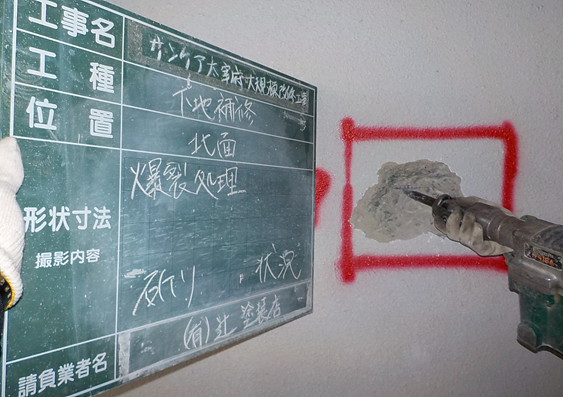 工事名 サンケア太宰府大規模改修工事
工種 下地補修
位置 北面
爆裂処理
形状寸法
撮影内容
斫り 状況
請負業者名 (有)辻塗装店